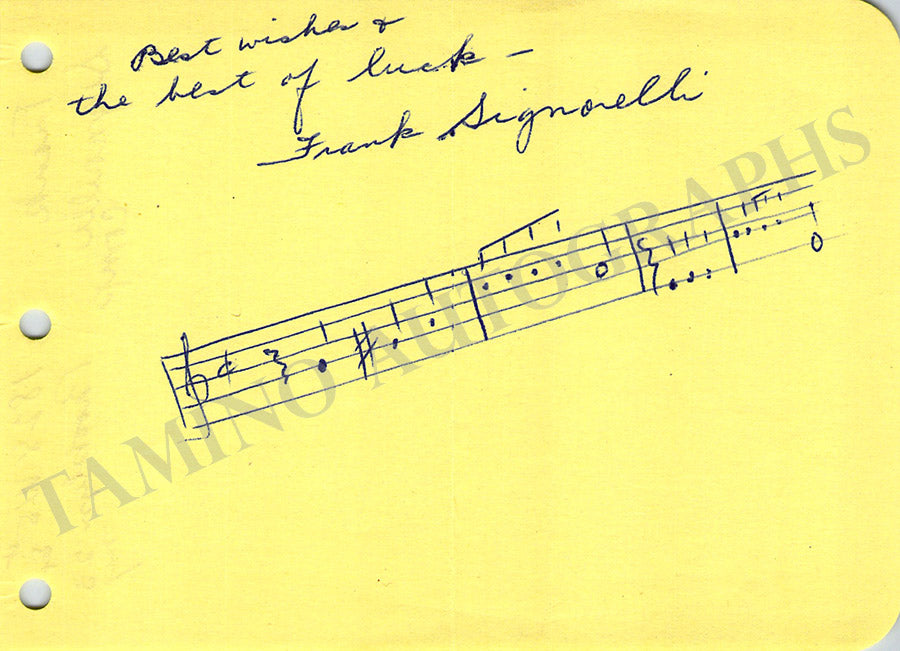 Best wishes &
the best of luck –
Frank Signorelli
TAMINO AUTOGRAPHS